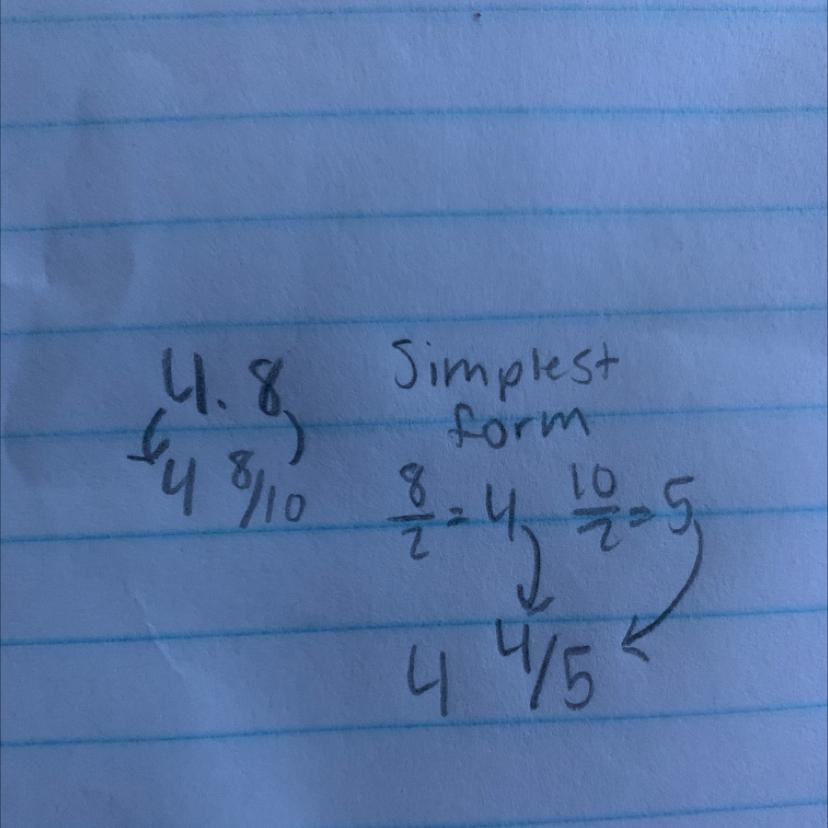 4.8
4 8/10
Simplest
form
8/2 = 4 10/2 = 5
4 4/5